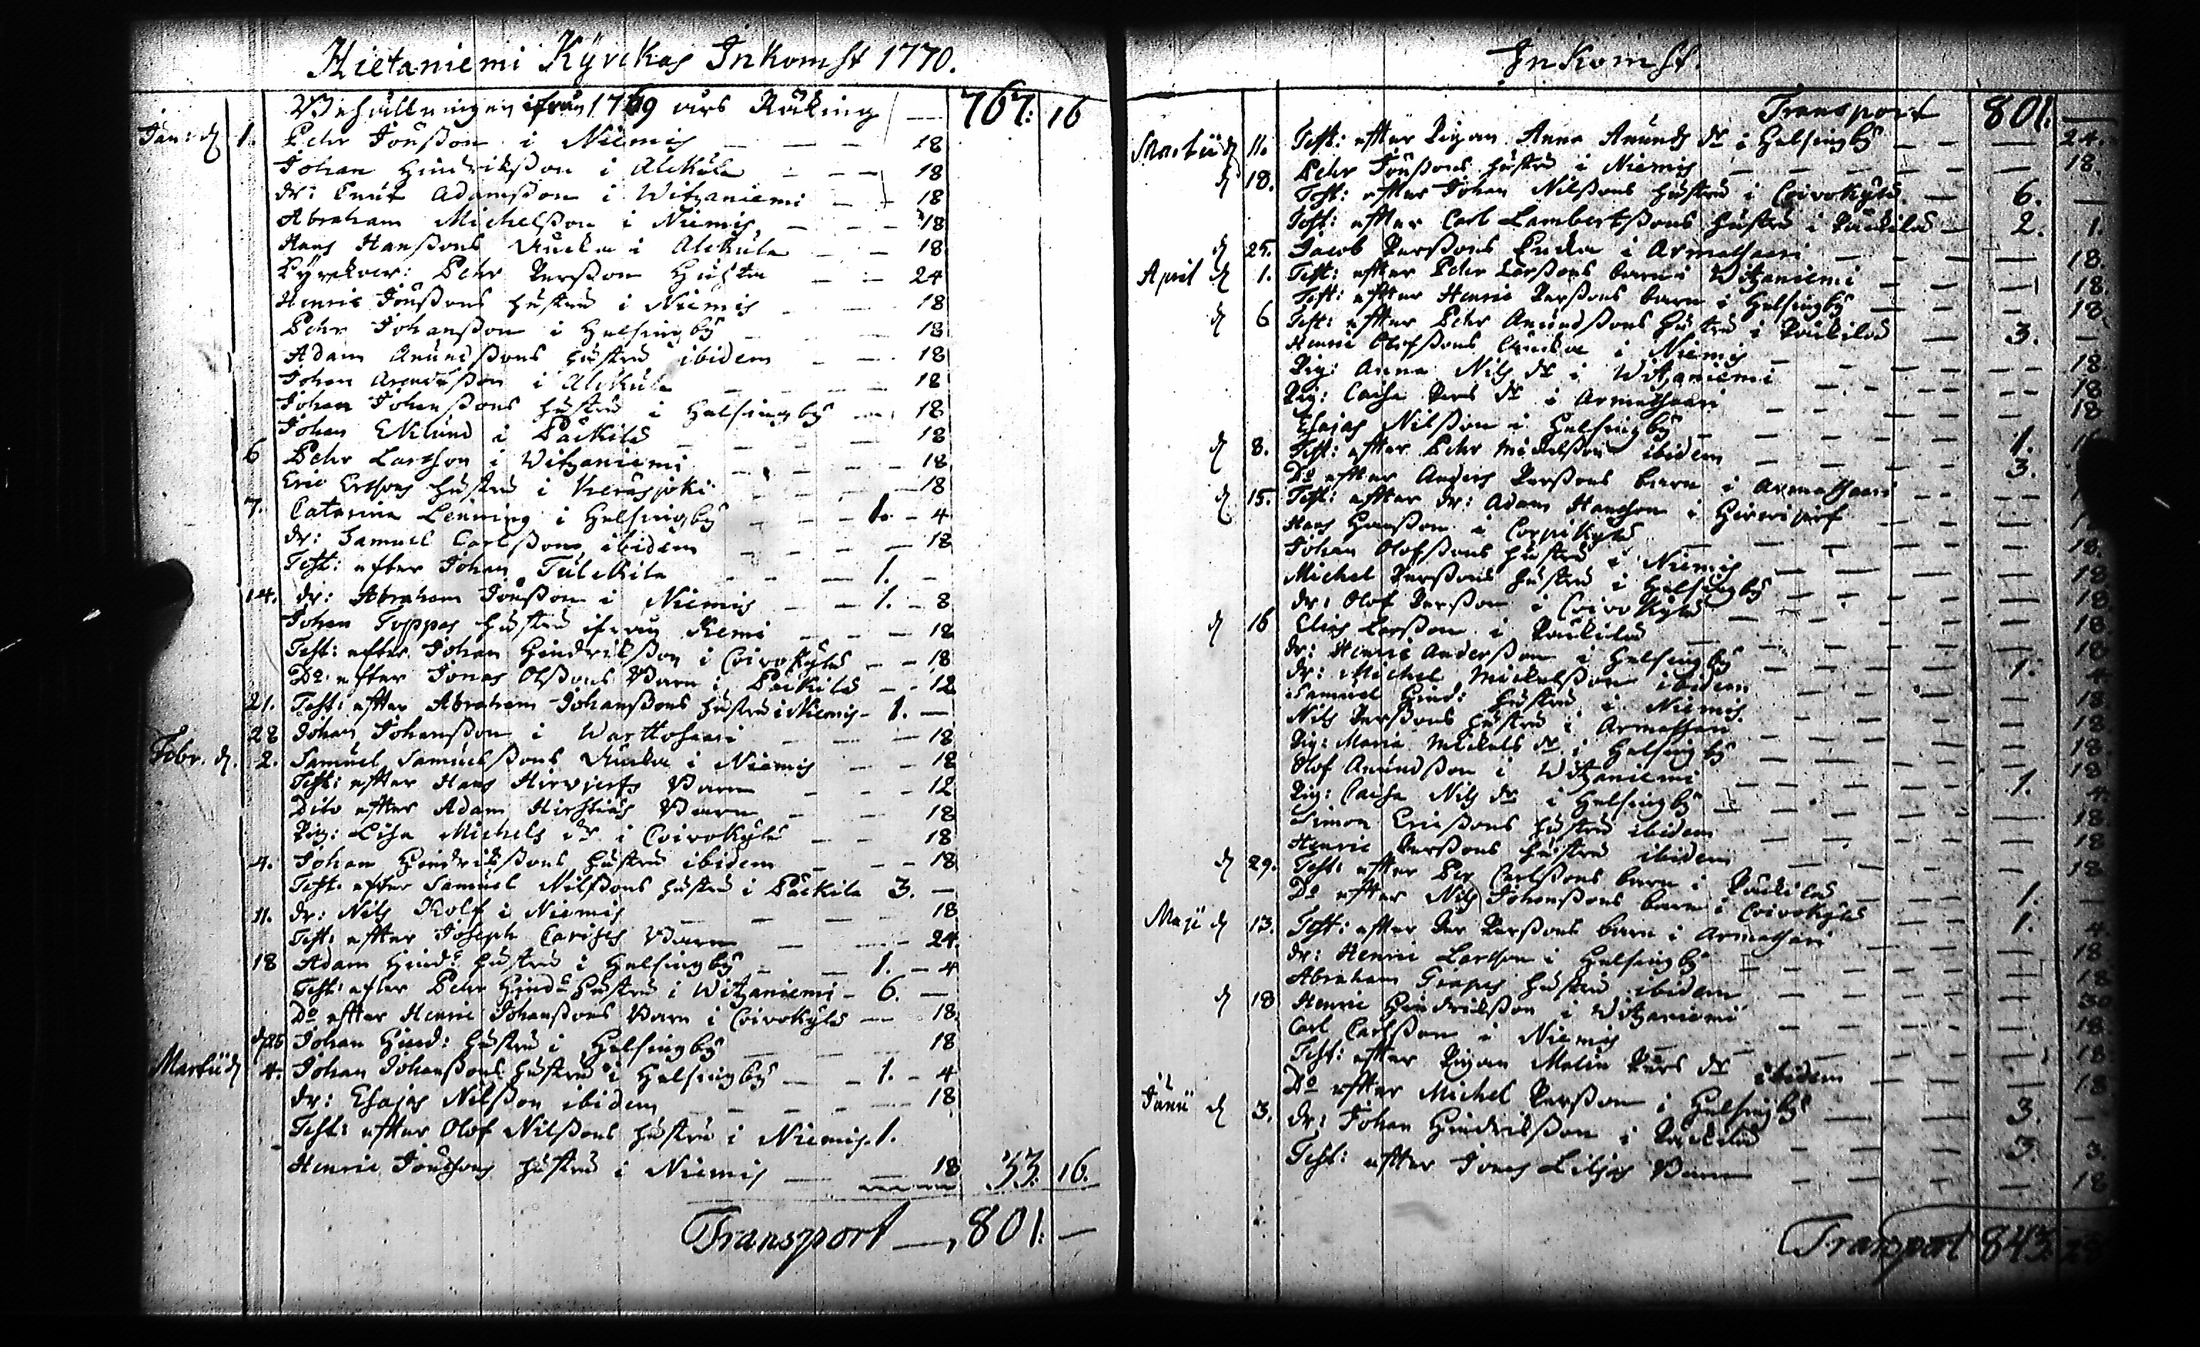 Hietaniemi Kyrckas Inkomst 1770.
Behållningen ifrån 1769 års Räkning — 767: 16
Janu: d 1. Pehr Jönßon i Niemis — — — 18
Johan Hindrikßon i Alckula — — — 18
dr: Enut Adamßon i Witzaniemi — — 18
Abraham Michelßon i Niemis — — — 18
Hans Hanßons Encka i Alckula — — 18
Kyrckov: Pehr Perßon Huhta — — 24
Henric Jönßons hustru i Niemis — — 18
Pehr Johanßon i Helsingby — — 18
Adam Anundßons hustru ibidem — — 18
Johan Arendßon i Alckula — — 18
Johan Johanßons hustru i Helsingby — 18
Johan Eklund i Päckilä — — 18
6 Pehr Larsson i Witzaniemi — — 18
Eric Ersons hustru i Kieräsjoki — — 18
7. Catarina Lenning i Helsingby — — 1. — 4
dr: Samuel Carlßon ibidem — — 18
Test: efter Johan Tulckila — — 1. —
14. dr: Abraham Jönßon i Niemis — — 1. — 8
Johan Toppas hustru ifrån Kemi — — 18
Test: efter Johan Hindrikßon i Coivokylä — — 18
Do efter Jonas Olßons Barn i Päckilä — — 12
21. Test: efter Abraham Johanßons hustru i Niemis — 1. —
28 Johan Johanßon i Warttosaari — — 18
Febr. d. 2. Samuel Samuelßons Encka i Niemis — — 18
Test: efter Hans Hirvjerfs Barn — — 12
Dito efter Adam Hirstiös Barn — — 18
Pig: Lisa Michels dr i Coivokylä — — 18
4. Johan Hindrikßons hustru ibidem — — 18
Test: efter Samuel Nilßons hustru i Päckilä 3. —
11. dr: Nils Kolf i Niemis — — 18
Test: efter Joseph Barn — — 24
18 Adam Hind: hustru i Helsingby — — 1. — 4
Test: efter Pehr Hind: hustru i Witzaniemi — 6. —
Do efter Henric Johanßons Barn i Coivokylä — 18.
d 25 Johan Hind: hustru i Helsingby — — 18
Martii d 4. Johan Johanßons hustru i Helsingby — — 1. — 4
dr: Esajas Nilßon ibidem — — 18
Test: efter Olof Nilßons hustru i Niemis. 1.
Henric Jönßons hustru i Niemis — — 18 33. 16.
Transport — 801: —
Inkomst.
Transport 801. —
Martii d 11. Test: efter Pigan Anna Anunds dr i Helsingby — — 24.
Pehr Jönßons hustru i Niemis — — 18.
d 18. Test: efter Johan Nilßons hustru i Coivokylä — 6. —
Test: efter Carl Lambertßons hustru i Päckilä — 2. 1.
d 25. Jacob Perßons Encka i Armassaari — — 18.
April d 1. Test: efter Pehr Larßons barn i Witzaniemi — — 18
Test: efter Henric Perßons barn i Helsingby — — 18
d 6 Test: efter Pehr Anundßons hustru i Päckilä — 3. —
Henric Olofßons Encka i Niemis — — 18
Pig: Anna Nils dr i Witzaniemi — — 18
Pig: Caisa Pers dr i Armassaari — — 18
Esajas Nilßon i Helsingby — —
d 8. Test: efter Pehr Mickelßon ibidem — 1.
Do efter Anders Perßons barn i Armassaari — 3.
d 15. Test: efter dr: Adam Hansson i
Hans Hanßon i Corpikylä — —
Johan Olofßons hustru i Niemis — — 18.
Michel Perßons hustru i Helsingby — — 18
dr: Olof Perßon i Coivokylä — — 18
d 16 Elias Larßon i Päckilä — — 18
dr: Henric Anderßon i Helsingby — — 18
dr: Michel Mickelßon ibidem — 1. 4
Samuel Hind: hustru i Niemis — — 18
Nils Perßons hustru i Armassari — — 18
Pig: Maria Mickels dr i Helsingby — — 18
Olof Anundßon i Witzaniemi — — 18
Pig: Caisa Nils dr i Helsingby — 1. 4.
Simon Ericßons hustru ibidem — — 18
Henric Perßons hustru ibidem — — 18
d 29. Test: efter Per Carlßons barn i Päckilä — — 18
Do efter Nils Johanßons barn i Coivokylä — 1. —
Maji d 13. Test: efter Per Perßons barn i Armassari — 1. 4
dr: Henric Larsson i Helsingby — — 18
Abraham Grapes hustru ibidem — — 18
d 18 Henric Hindrikßon i Witzaniemi — — 30
Carl Carlßon i Niemis — — 18
Test: efter Pigan Malin Pers dr ibidem — — 18
Do efter Michel Perßon i Helsingby — — 18
Junii d 3. dr: Johan Hindrikßon i Päckilä — 3. —
Test: efter Jonas Liljas Barn — 3. 3
— 18
Transport 843. 28